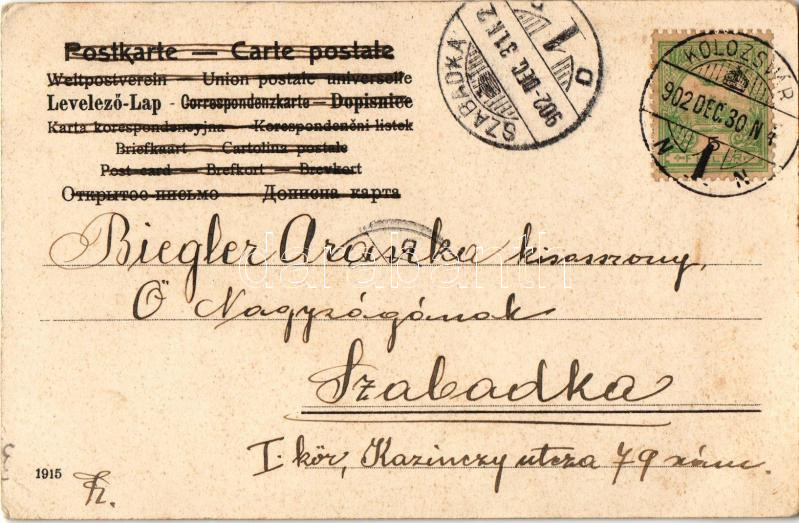 Postkarte — Carte postale
Weltpostverein — Union postale universelle
Levelező-Lap - Correspondenzkarte - Dopisnice
Karta korespondencyjna — Korespondenčni listek
Briefkaart — Cartolina postale
Post-card — Brefkort — Brevkort
Открытое письмо — Дописна карта
SZABADKA
902 DEC. 31 N 2
1
D
KOLOZSVÁR
902 DEC. 30 N 4
Biegler Aranka kisasszony,
Ő Nagyságának
Szabadka
I. kör, Kazinczy utcza 79 szám.
darabanth
1915